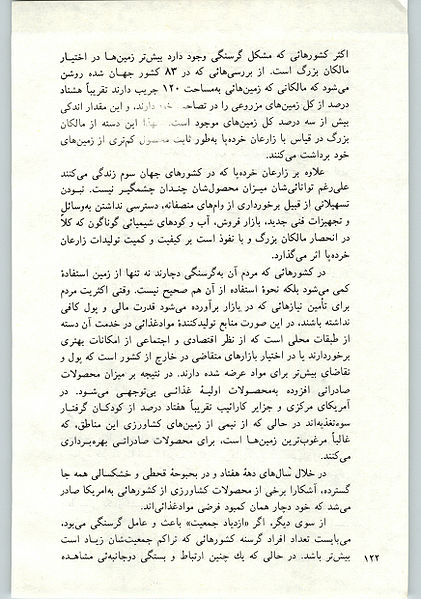 اکثر کشورهائی که مشکل گرسنگی وجود دارد بیش‌تر زمین‌ها در اختیار
مالکان بزرگ است. از بررسی‌هائی که در ۸۳ کشور جهان شده روشن
می‌شود که مالکانی که زمین‌هائی به‌مساحت ۱۲۰ جریب دارند تقریباً هشتاد
درصد از کل زمین‌های مزروعی را در تصاحب خود دارند، و این مقدار اندکی
بیش از سه درصد کل زمین‌های موجود است. این دسته از مالکان
بزرگ در قیاس با زارعان خرده‌پا به‌طور ثابت محصول کم‌تری از زمین‌های
خود برداشت می‌کنند.
علاوه بر زارعان خرده‌پا که در کشورهای جهان سوم زندگی می‌کنند
علی‌رغم توانائی‌شان میزان محصول‌شان چندان چشمگیر نیست. نبودن
تسهیلاتی از قبیل برخورداری از وام‌های منصفانه، دسترسی نداشتن به‌وسائل
و تجهیزات فنی جدید، بازار فروش، آب و کودهای شیمیائی گوناگون که کلاً
در انحصار مالکان بزرگ و با نفوذ است بر کیفیت و کمیت تولیدات زارعان
خرده‌پا اثر می‌گذارد.
در کشورهائی که مردم آن به‌گرسنگی دچارند نه تنها از زمین استفادهٔ
کمی می‌شود بلکه نحوهٔ استفاده از آن هم صحیح نیست. وقتی اکثریت مردم
برای تأمین نیازهائی که در بازار برآورده می‌شود قدرت مالی و پول کافی
نداشته باشند، در این صورت منابع تولیدکنندهٔ موادغذائی در خدمت آن دسته
از طبقات محلی است که از نظر اقتصادی و اجتماعی از امکانات بهتری
برخوردارند یا در اختیار بازارهای متقاضی در خارج از کشور است که پول و
تقاضای بیش‌تر برای مواد عرضه شده دارند. در نتیجه بر میزان محصولات
صادراتی افزوده به‌محصولات اولیهٔ غذائی بی‌توجهی می‌شود. در
آمریکای مرکزی و جزایر کارائیب تقریباً هفتاد درصد از کودکان گرفتار
سوءتغذیه‌اند در حالی که از نیمی از زمین‌های کشاورزی این مناطق، که
غالباً مرغوب‌ترین زمین‌ها است، برای محصولات صادراتی بهره‌برداری
می‌کنند.
در خلال سال‌های دههٔ هفتاد و در بحبوحهٔ قحطی و خشکسالی همه جا
گسترده، آشکارا برخی از محصولات کشاورزی از کشورهائی به‌امریکا صادر
می‌شد که خود دچار همان کمبود فرضی موادغذائی‌اند.
از سوی دیگر، اگر «ازدیاد جمعیت» باعث و عامل گرسنگی می‌بود،
می‌بایست تعداد افراد گرسنه کشورهائی که تراکم جمعیت‌شان زیاد است
بیش‌تر باشد. در حالی که یك چنین ارتباط و بستگی دوجانبه‌ئی مشاهده
۱۲۲